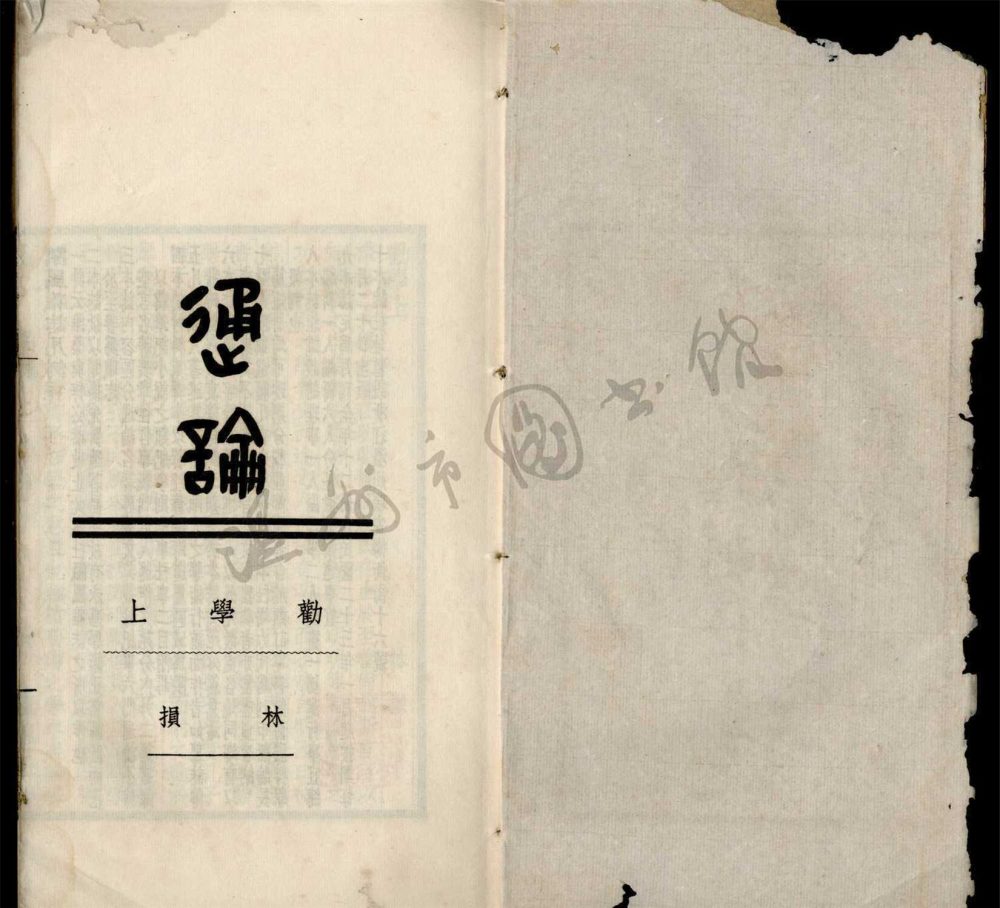 通論
勸學上
林損
温州市圖書館